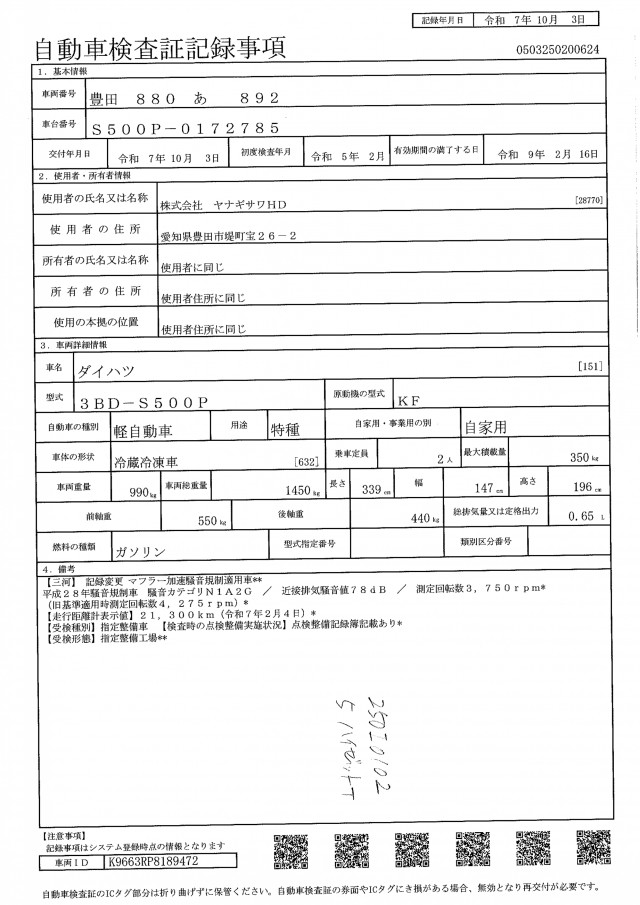 記録年月日 令和 7年10月 3日
自動車検査証記録事項
0503250200624
1．基本情報
車両番号 豊田 880 あ 892
車台番号 S500P－0172785
交付年月日 令和 7年10月 3日 初度検査年月 令和 5年 2月 有効期間の満了する日 令和 9年 2月16日
2．使用者・所有者情報
使用者の氏名又は名称 株式会社 ヤナギサワHD [28770]
使用者の住所 愛知県豊田市堤町宝26－2
所有者の氏名又は名称 使用者に同じ
所有者の住所 使用者住所に同じ
使用の本拠の位置 使用者住所に同じ
3．車両詳細情報
車名 ダイハツ [151]
型式 3BD－S500P 原動機の型式 KF
自動車の種別 軽自動車 用途 特種 自家用・事業用の別 自家用
車体の形状 冷蔵冷凍車 [632] 乗車定員 2人 最大積載量 350kg
車両重量 990kg 車両総重量 1450kg 長さ 339cm 幅 147cm 高さ 196cm
前軸重 550kg 後軸重 440kg 総排気量又は定格出力 0.65 L
燃料の種類 ガソリン 型式指定番号 類別区分番号
4．備考
【三河】 記録変更 マフラー加速騒音規制適用車**
平成28年騒音規制車 騒音カテゴリN1A2G ／ 近接排気騒音値78dB ／ 測定回転数3，750rpm*
（旧基準適用時測定回転数4，275rpm）*
【走行距離計表示値】21，300km（令和7年2月4日）*
【受検種別】指定整備車 【検査時の点検整備実施状況】点検整備記録簿記載あり*
【受検形態】指定整備工場**
ハイゼット
【注意事項】
記録事項はシステム登録時点の情報となります
車両ID K9663RP8189472
自動車検査証のICタグ部分は折り曲げずに保管ください。自動車検査証の券面やICタグにき損がある場合、無効となり再交付が必要です。